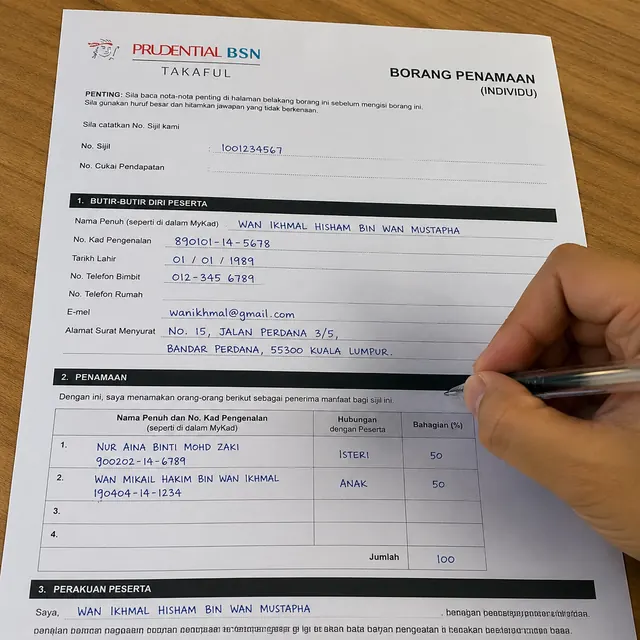 PRUDENTIAL BSN
TAKAFUL
BORANG PENAMAAN
(INDIVIDU)
PENTING: Sila baca nota-nota penting di halaman belakang borang ini sebelum mengisi borang ini.
Sila gunakan huruf besar dan hitamkan jawapan yang tidak berkenaan.
Sila catatkan No. Sijil kami
No. Sijil : 1001234567
No. Cukai Pendapatan :
1. BUTIR-BUTIR DIRI PESERTA
Nama Penuh (seperti di dalam MyKad) WAN IKHMAL HISHAM BIN WAN MUSTAPHA
No. Kad Pengenalan 890101-14-5678
Tarikh Lahir 01 / 01 / 1989
No. Telefon Bimbit 012-345 6789
No. Telefon Rumah
E-mel wanikhmal@gmail.com
Alamat Surat Menyurat NO. 15, JALAN PERDANA 3/5,
BANDAR PERDANA, 55300 KUALA LUMPUR.
2. PENAMAAN
Dengan ini, saya menamakan orang-orang berikut sebagai penerima manfaat bagi sijil ini.
Nama Penuh dan No. Kad Pengenalan
(seperti di dalam MyKad)
Hubungan
dengan Peserta
Bahagian (%)
1. NUR AINA BINTI MOHD ZAKI
900202-14-6789
ISTERI
50
2. WAN MIKAIL HAKIM BIN WAN IKHMAL
190404-14-1234
ANAK
50
3.
4.
Jumlah 100
3. PERAKUAN PESERTA
Saya, WAN IKHMAL HISHAM BIN WAN MUSTAPHA